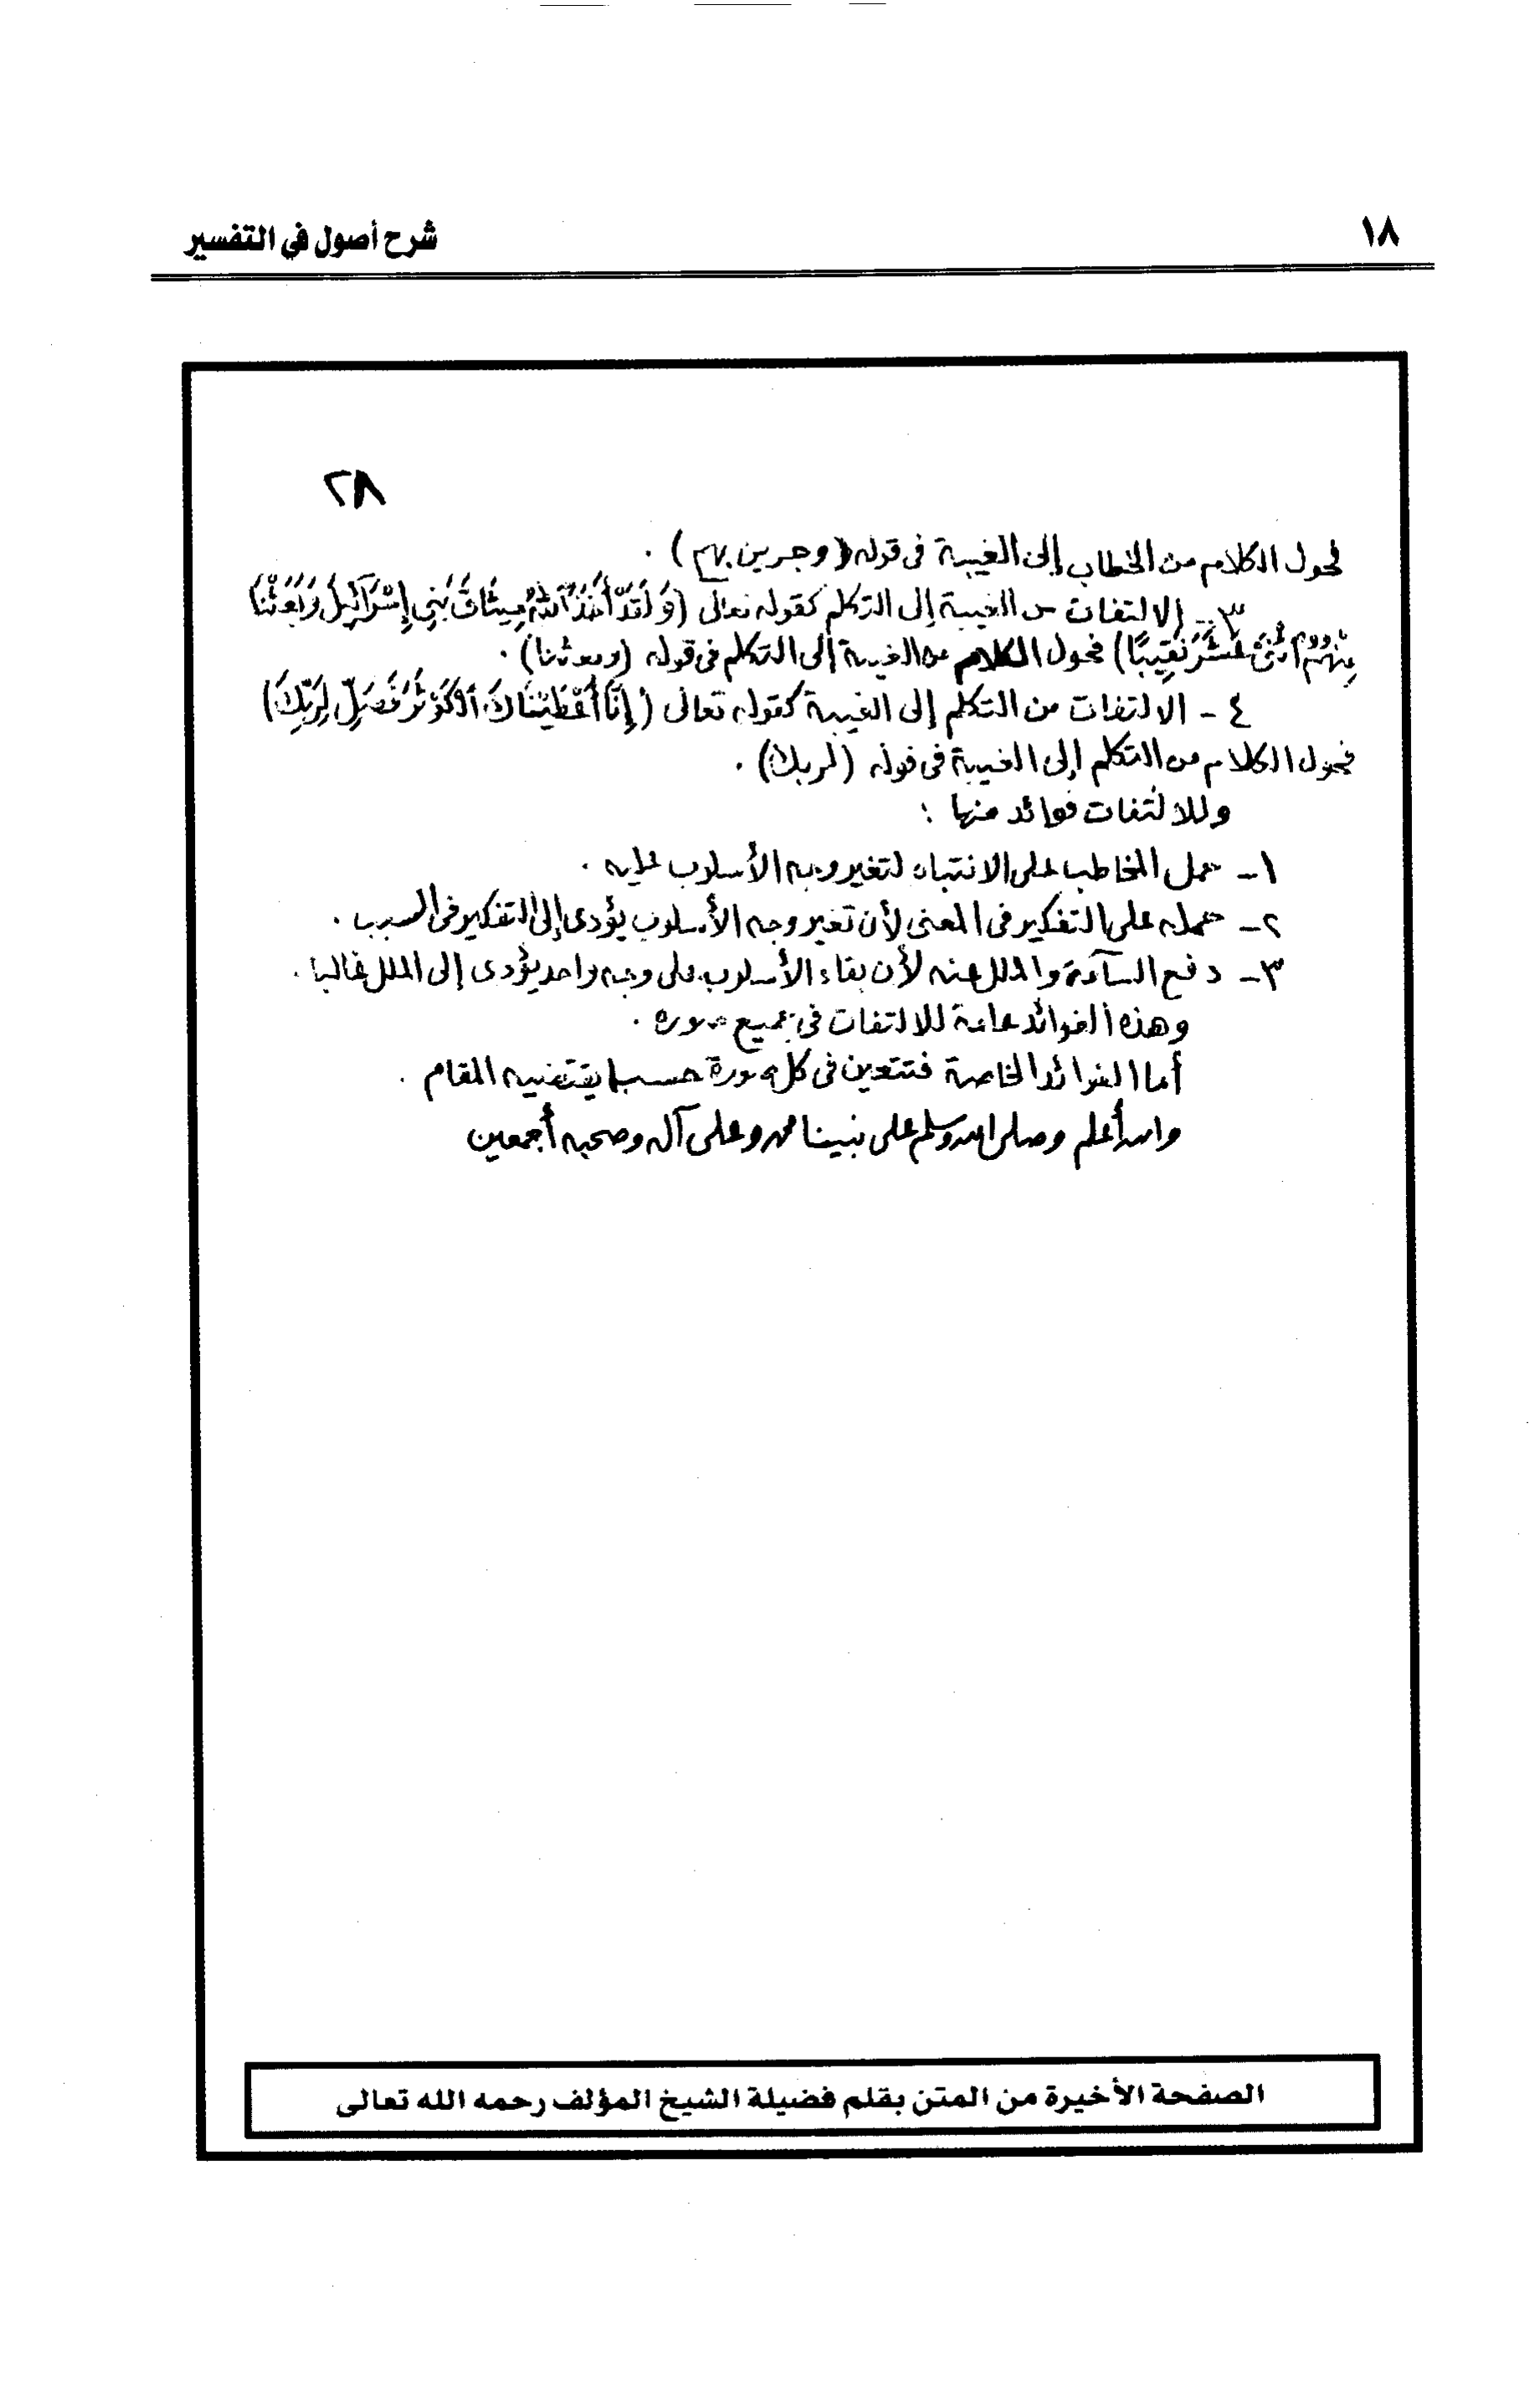 ١٨
شرح أصول في التفسير
٢٨
فحول الكلام من الخطاب إلى الغيبة في قوله (وجرين بهم) .
٣ - الالتفات من الغيبة إلى التكلم كقوله تعالى (وَلَقَدْ أَخَذَ اللَّهُ مِيثَاقَ بَنِي إِسْرَآئِيلَ وَبَعَثْنَا
مِنْهُمُ اثْنَيْ عَشَرَ نَقِيبًا) فحول الكلام من الغيبة إلى التكلم في قوله (وبعثنا) .
٤ - الالتفات من التكلم إلى الغيبة كقوله تعالى (إِنَّا أَعْطَيْنَاكَ الْكَوْثَرَ فَصَلِّ لِرَبِّكَ)
فحول الكلام من التكلم إلى الغيبة في قوله (لربك) .
وللالتفات فوائد منها :
١ - حمل المخاطب على الانتباه لتغير وجه الأسلوب عليه .
٢ - حمله على التفكير في المعنى لأن تغير وجه الأسلوب يؤدي إلى التفكير في السبب .
٣ - دفع السآمة والملل عنه لأن بقاء الأسلوب على وجه واحد يؤدي إلى الملل غالبا .
وهذه الفوائد عامة للالتفات في جميع صوره .
أما الفوائد الخاصة فتتعين في كل صورة حسبما يقتضيه المقام .
والله أعلم وصلى الله وسلم على نبينا محمد وعلى آله وصحبه أجمعين
الصفحة الأخيرة من المتن بقلم فضيلة الشيخ المؤلف رحمه الله تعالى